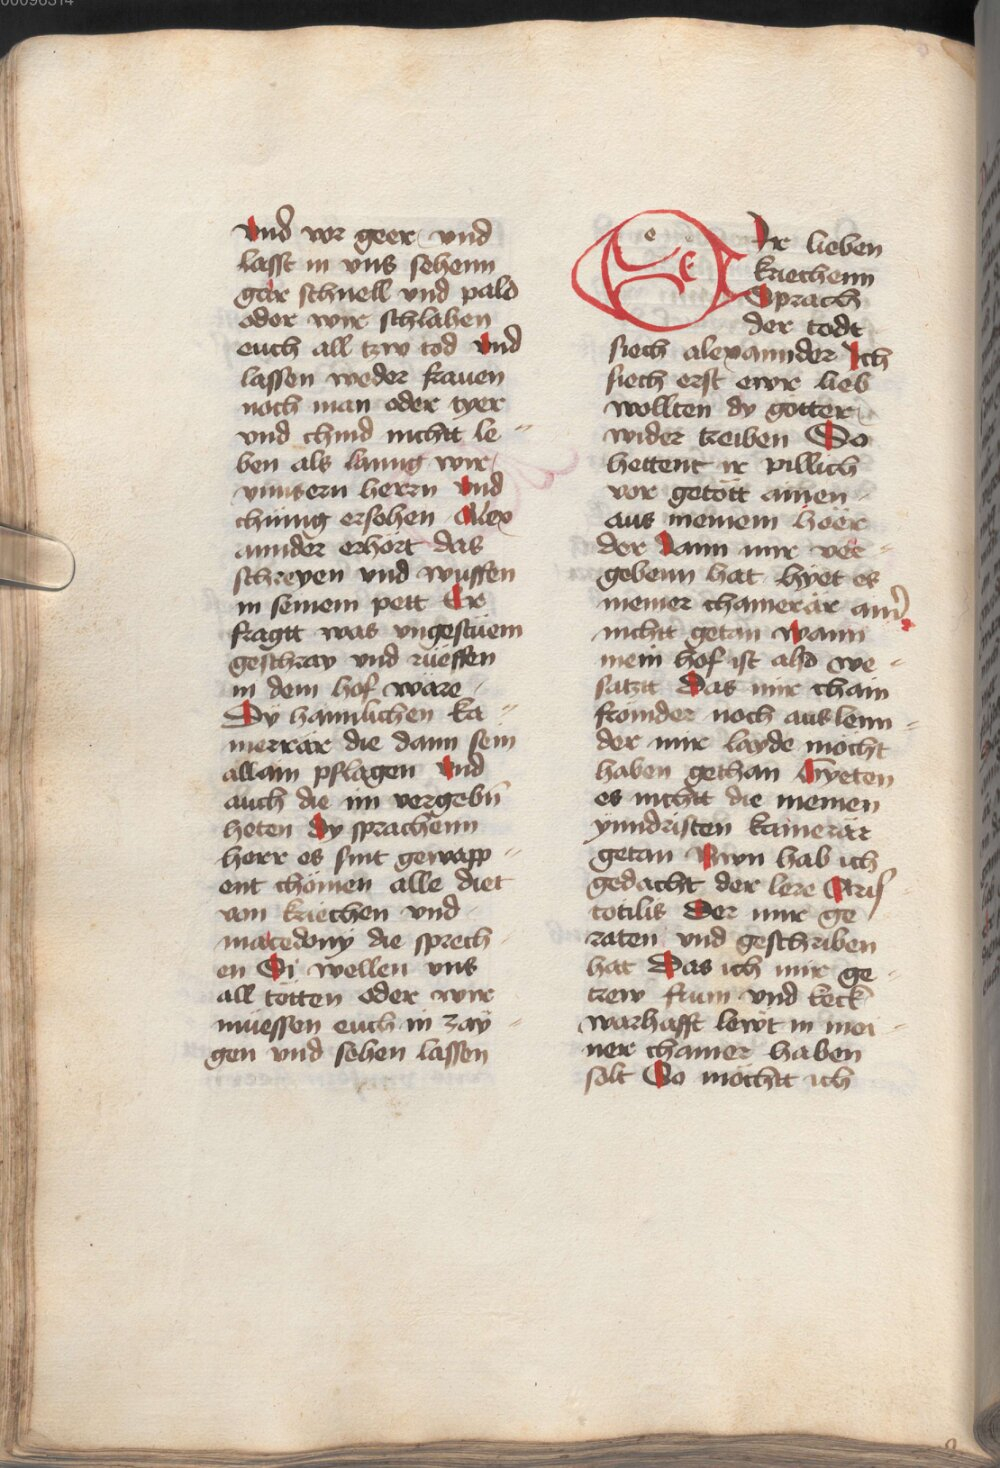 00096314
Und vor geer und
lasst in vns sehenn
gar schnell vnd pald
oder wir schlahen
euch all tzw tod vnd
lassen weder frauen
noch man oder tyer
vnd chind nichtt le-
ben als lanng wir
vnnsern herrn vnd
chünig ersehen Alex
annder erhört das
schreyen vnd wuffen
in seinem pett Er
fragtt was vngestüem
geschray vnd rüeffen
in dem hof wäre
Dy haimlichen ka-
merrär die dann sein
allain pflagen Vnd
auch die im vergebn̄
heten dy sprachenn
herr es sint gewapp-
ent chömen alle diet
von kriechen vnd
macedony die sprech
en Si wellen vns
all tötten oder wir
müessen euch in zay-
gen vnd sehen lassen
e
E Ir lieben
kriechenn
Sprach
der todt
siech alexannder Ich
siech erst ewr lieb
wollten dy götter
wider treiben So
hettent ir pillich
vor getött ainen
aus meinem höer
der dann mir ver-
gebenn hat hyet es
meiner chamerär ainr̄
nichtt getan wann
mein hof ist also we-
satzt Das mir chain
frömder noch auslenn-
der mir layde möcht
haben gethan Hyeten
es nichtt die meinen
ynndristen kamerär
getan Nwn hab ich
gedacht der lere Aris-
totilis Der mir ge
raten vnd geschriben
hat Das ich mir ge-
trew frum vnd keck
warhafft lewt in mei-
ner chamer haben
solt So möchtt ich